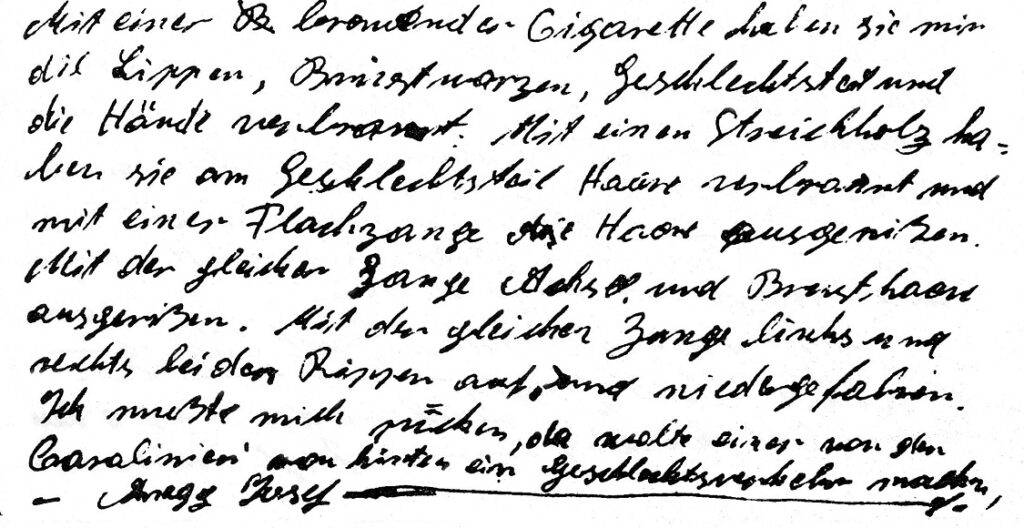 Mit einer brennenden Cigarette haben sie mir
die Lippen, Brustwarzen, Geschlechtsteil und
die Hände verbrannt. Mit einen Streichholz ha=
ben sie am Geschlechtsteil Haare verbrannt und
mit einer Flachzange die Haare ausgerißen.
Mit der gleichen Zange Achsel und Brusthaare
ausgerißen. Mit der gleichen Zange links und
rechts bei den Rippen auf, und niedergefahren.
Ich mußte mich bücken, da wolte einer von den
Carabinieri von hinten ein Geschlechtsverkehr machen,
- Josef